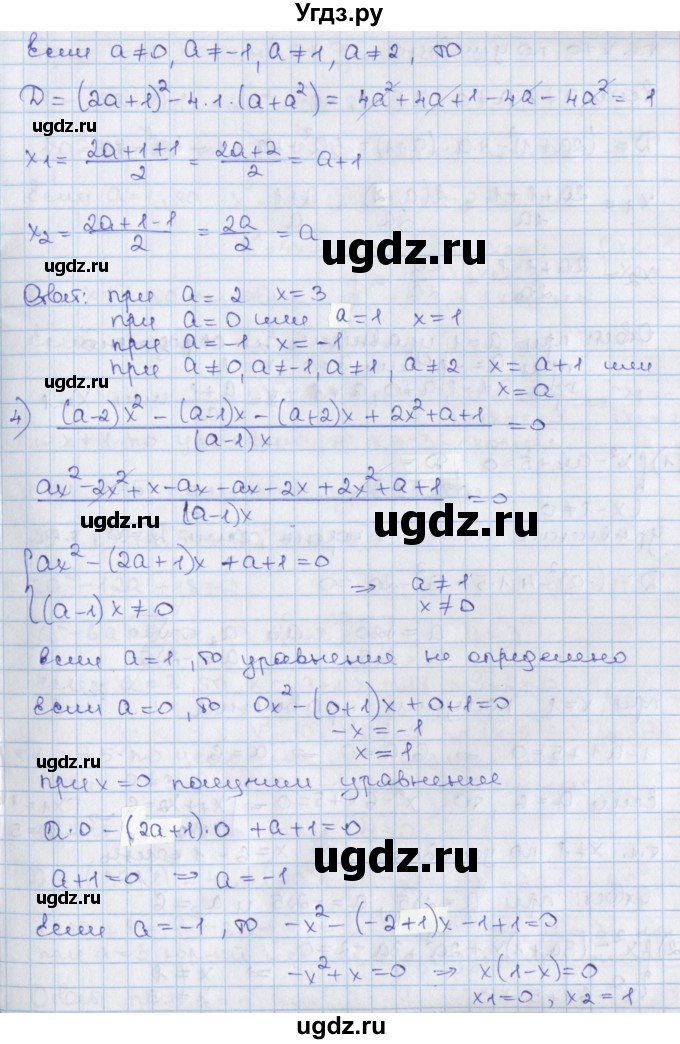 Угдз.ру
Если a≠0, a≠-1, a≠1, a≠2, то
D = (2a+1)² - 4·1·(a+a²) = 4a²+4a+1-4a-4a² = 1
ugdz.ru
x1 = (2a+1+1)/2 = (2a+2)/2 = a+1
x2 = (2a+1-1)/2 = 2a/2 = a
ugdz.ru
ugdz.ru
Ответ: при a = 2 x = 3
при a = 0 или a = 1 x = 1
при a = -1 x = -1
при a≠0, a≠-1, a≠1, a≠2 x = a+1 или
x = a
ugdz.ru
4) ((a-2)x² - (a-1)x - (a+2)x + 2x²+a+1)/((a-1)x) = 0
(ax²-2x²+x-ax-ax-2x+2x²+a+1)/((a-1)x) = 0
ugdz.ru
ugdz.ru
{ax² - (2a+1)x + a+1 = 0
{(a-1)x ≠ 0 => a≠1
x≠0
ugdz.ru
ugdz.ru
если a=1, то уравнения не определено
если a=0, то 0x² - (0+1)x + 0+1 = 0
-x = -1
x = 1
ugdz.ru
при x=0 получим уравнение
a·0 - (2a+1)·0 + a+1 = 0
ugdz.ru
a+1=0 => a = -1
ugdz.ru
если a = -1, то -x² - (-2+1)x - 1+1 = 0
-x²+x = 0 => x(1-x) = 0
x1=0, x2 = 1
ugdz.ru